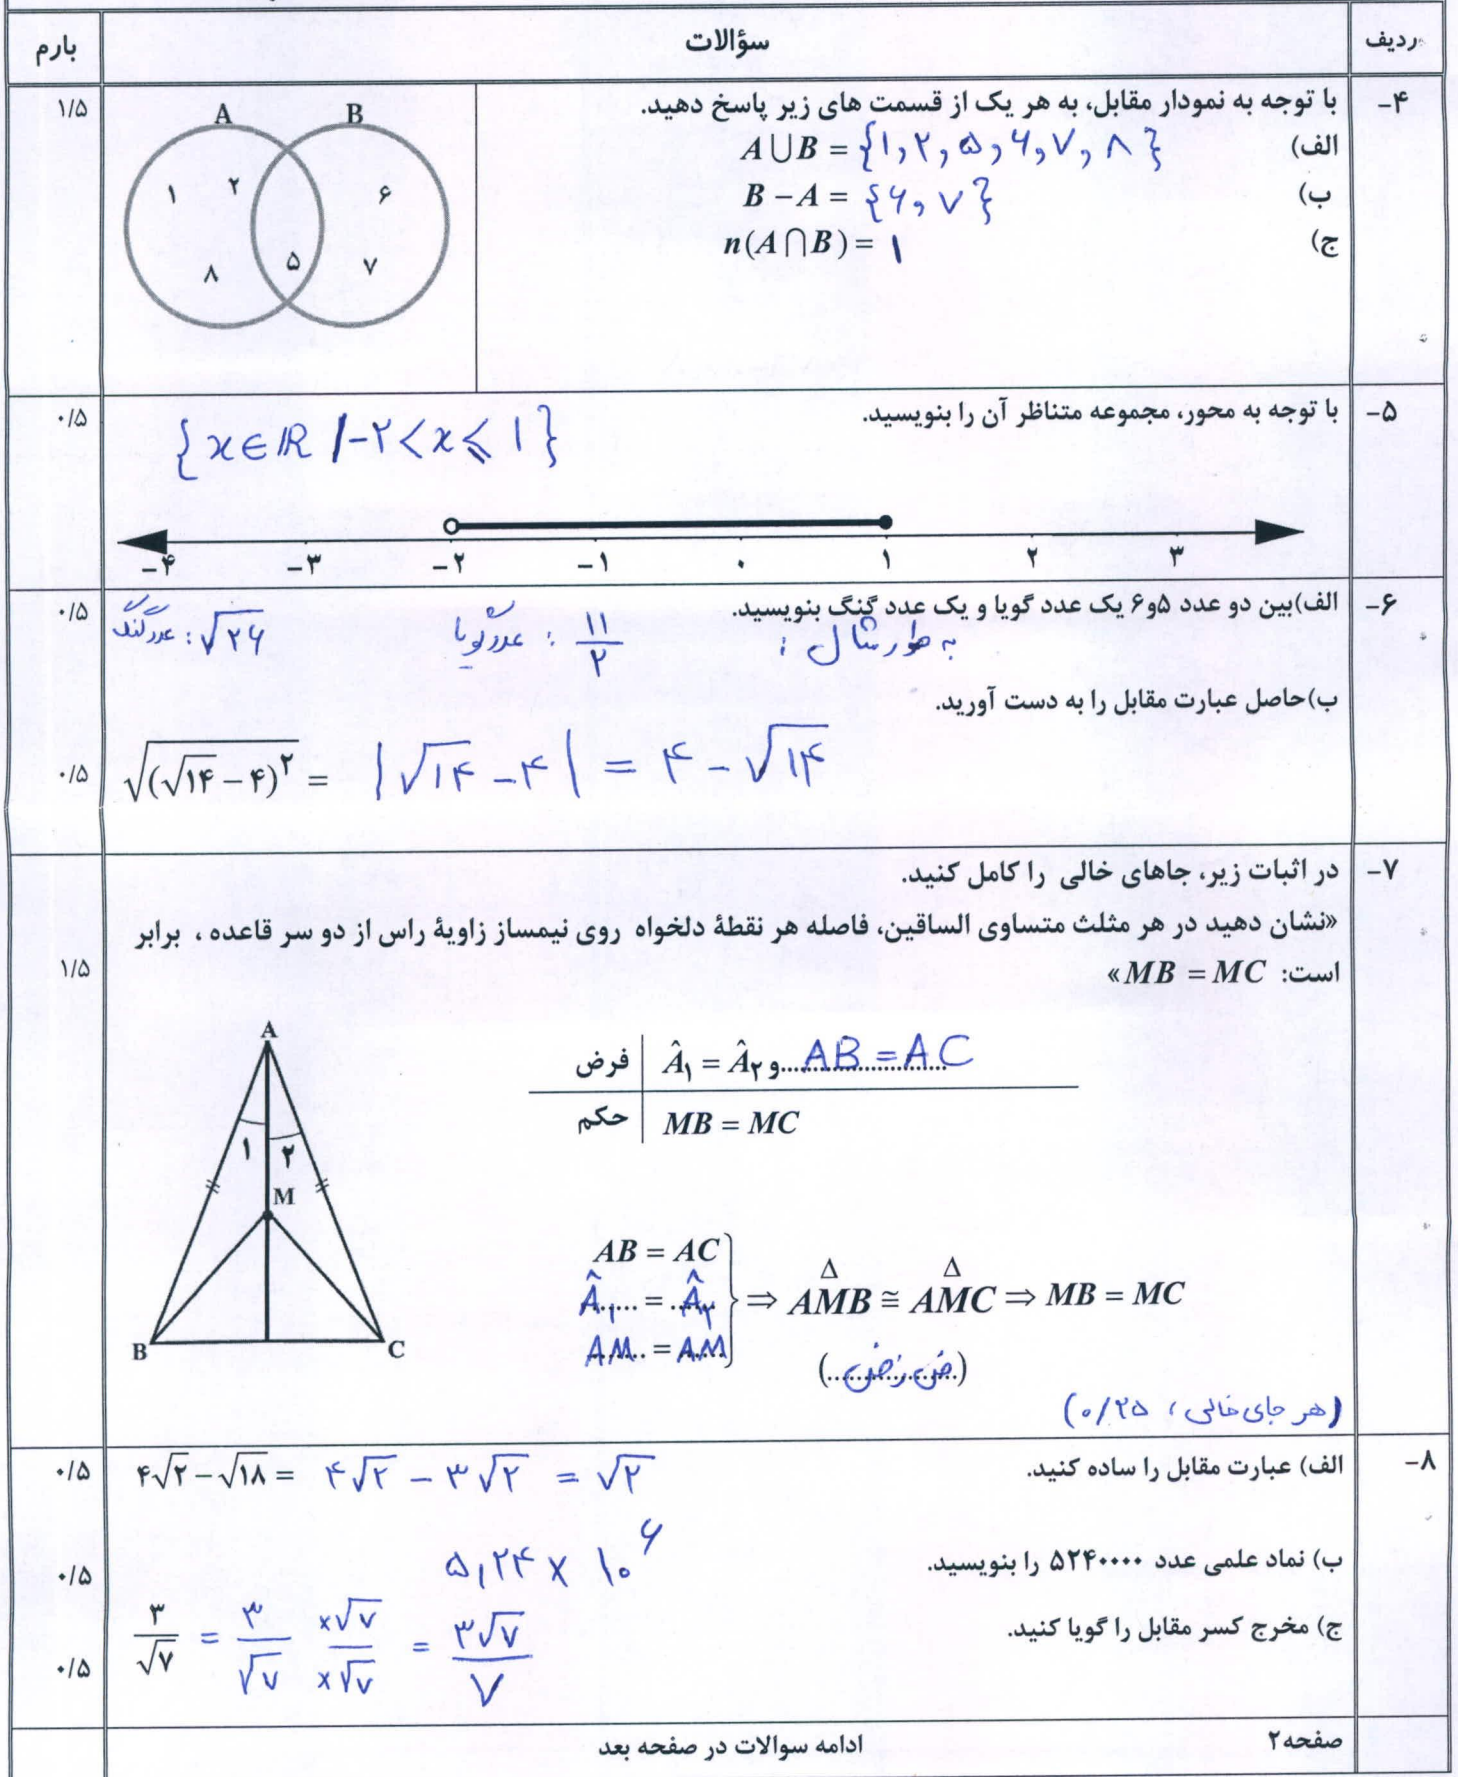 ردیف سؤالات بارم
۴- با توجه به نمودار مقابل، به هر یک از قسمت های زیر پاسخ دهید. ۱/۵
الف) A∪B = {۱, ۲, ۵, ۶, ۷, ۸}
ب) B − A = {۶, ۷}
ج) n(A∩B) = ۱
A B
۱ ۲ ۶
۸ ۵ ۷
۵- با توجه به محور، مجموعه متناظر آن را بنویسید. ۰/۵
{x∈ℝ | −۲ < x ⩽ ۱}
−۴ −۳ −۲ −۱ ۰ ۱ ۲ ۳
۶- الف)بین دو عدد ۵و۶ یک عدد گویا و یک عدد گنگ بنویسید. ۰/۵
به طور مثال : عدد گویا : ۱۱/۲ عدد گنگ : √۲۶
ب)حاصل عبارت مقابل را به دست آورید.
√((√۱۴ − ۴)^۲) = |√۱۴ − ۴| = ۴ − √۱۴ ۰/۵
۷- در اثبات زیر، جاهای خالی را کامل کنید.
«نشان دهید در هر مثلث متساوی الساقین، فاصله هر نقطهٔ دلخواه روی نیمساز زاویهٔ راس از دو سر قاعده ، برابر
است: MB = MC» ۱/۵
فرض | Â₁ = Â₂ و AB = AC
حکم | MB = MC
A
۱ ۲
M
B C
AB = AC
Â₁ = Â₂ } ⇒ AMB ≅ AMC ⇒ MB = MC
AM = AM
(ض ز ض)
(هر جای خالی ، ۰/۲۵)
۸- الف) عبارت مقابل را ساده کنید. ۴√۲ − √۱۸ = ۴√۲ − ۳√۲ = √۲ ۰/۵
ب) نماد علمی عدد ۵۲۴۰۰۰۰ را بنویسید. ۵٫۲۴ × ۱۰^۶ ۰/۵
ج) مخرج کسر مقابل را گویا کنید. ۳/√۷ = ۳/√۷ ×√۷/×√۷ = ۳√۷/۷ ۰/۵
صفحه۲ ادامه سوالات در صفحه بعد